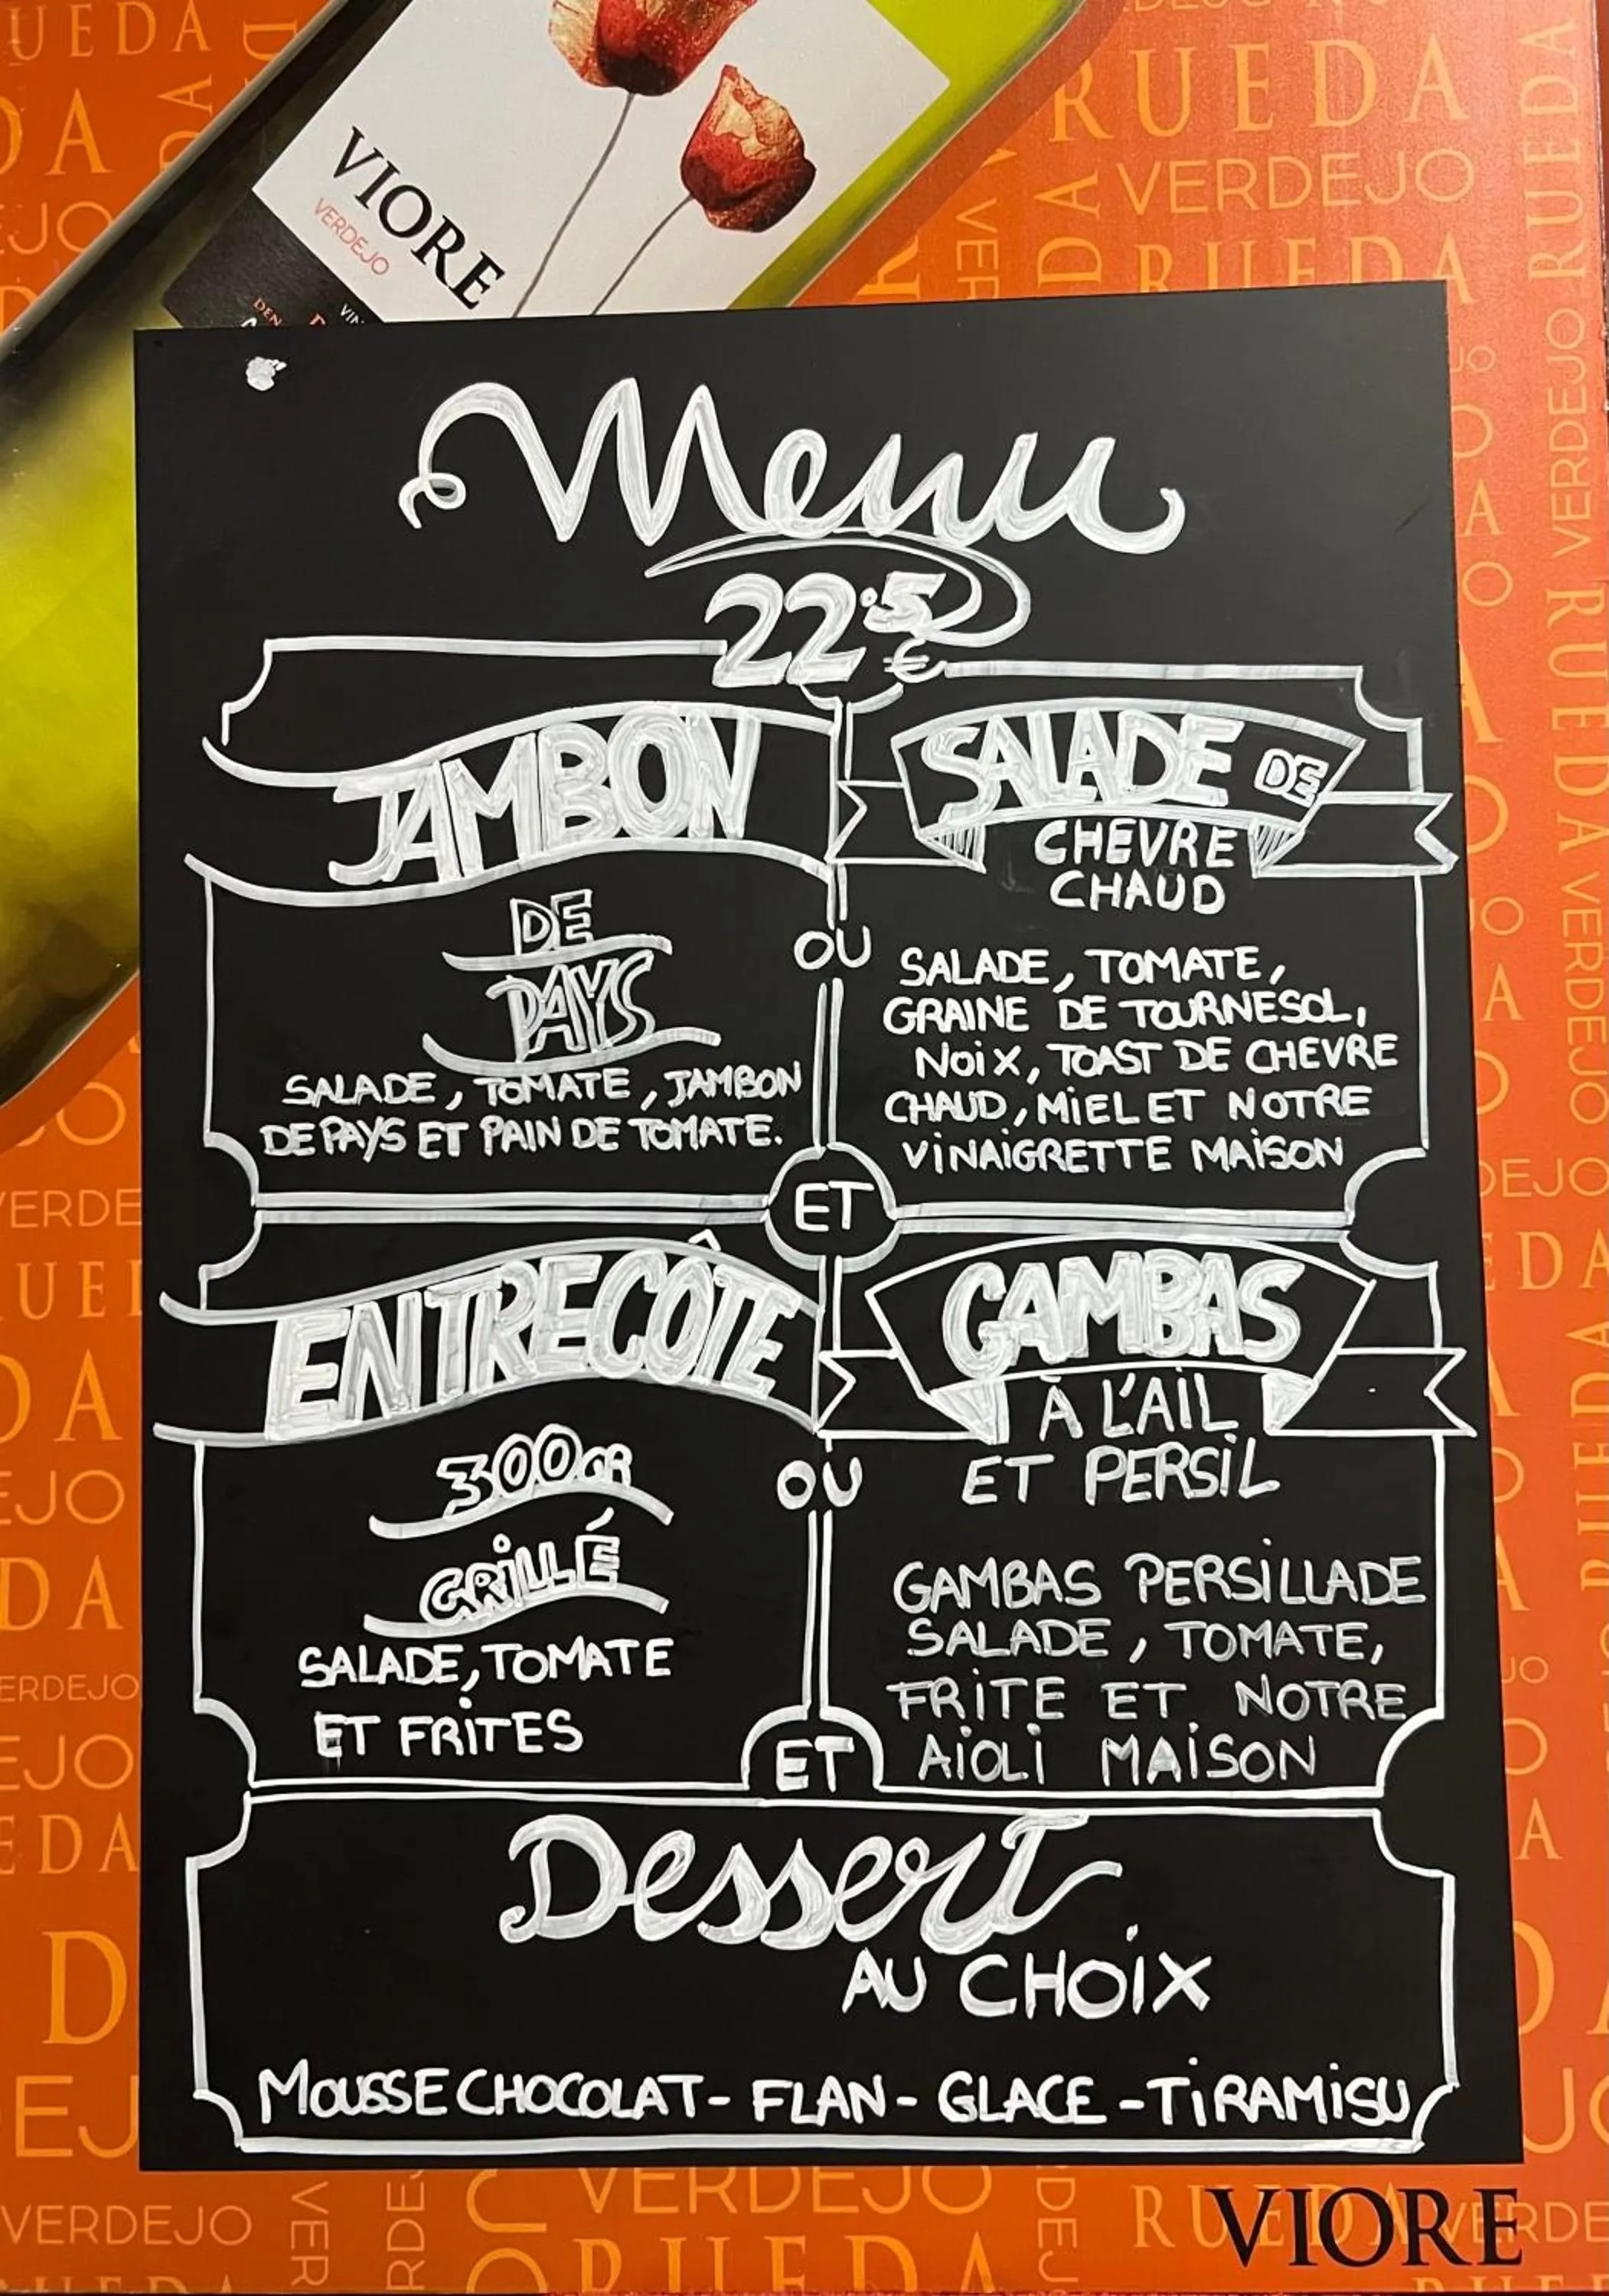 VIORE
VERDEJO
RUEDA
VERDEJO
RUEDA
Menu
22.5
€
JAMBON
DE
PAYS
SALADE, TOMATE, JAMBON
DE PAYS ET PAIN DE TOMATE.
OU
SALADE DE
CHEVRE
CHAUD
SALADE, TOMATE,
GRAINE DE TOURNESOL,
NOIX, TOAST DE CHEVRE
CHAUD, MIEL ET NOTRE
VINAIGRETTE MAISON
ET
ENTRECÔTE
300GR
GRILLÉ
SALADE, TOMATE
ET FRITES
OU
GAMBAS
À L'AIL
ET PERSIL
GAMBAS PERSILLADE
SALADE, TOMATE,
FRITE ET NOTRE
AIOLI MAISON
ET
Dessert
AU CHOIX
MOUSSE CHOCOLAT - FLAN - GLACE - TIRAMISU
VERDEJO
VERDEJO
RUEDA
VIORE